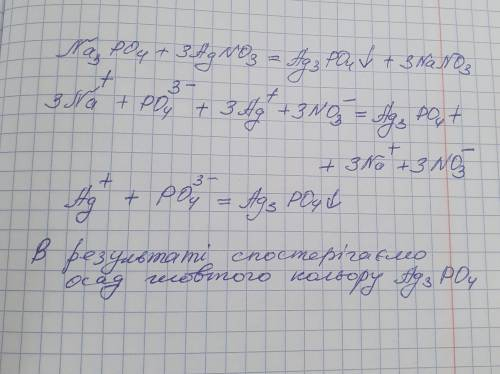 Na₃PO₄ + 3AgNO₃ = Ag₃PO₄↓ + 3NaNO₃
3Na⁺ + PO₄³⁻ + 3Ag⁺ + 3NO₃⁻ = Ag₃PO₄ +
+ 3Na⁺ + 3NO₃⁻
Ag⁺ + PO₄³⁻ = Ag₃PO₄↓
В результаті спостерігаємо
осад жовтого кольору Ag₃PO₄